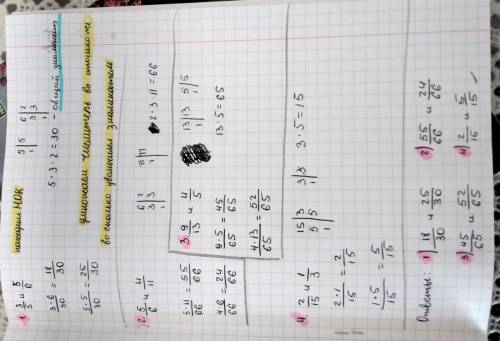 находим НОК
1. 3/5 и 5/6
5 | 5
1 |
6 | 2
3 | 3
1 |
5 · 3 · 2 = 30 - общий знаменат
3·6/30 = 18/30
5·5/30 = 25/30
умножаем числитель во столько же
во сколько увеличился знаменатель
2. 5/6 и 4/11
6 | 2
3 | 3
1 |
11 | 11
1 |
2 · 3 · 11 = 66
5·11/66 = 55/66
4·6/66 = 24/66
3. 9/13 и 4/5
13 | 13
1 |
5 | 5
1 |
9·5/65 = 45/65
13 · 5 = 65
4·13/65 = 52/65
4. 2/15 и 1/3
15 | 3
5 | 5
1 |
3 | 3
1 |
3 · 5 = 15
2·1/15 = 2/15
1·5/15 = 5/15
Ответы: 1) 18/30 и 25/30 2) 55/66 и 24/66
3) 45/65 и 52/65 4) 2/15 и 5/15